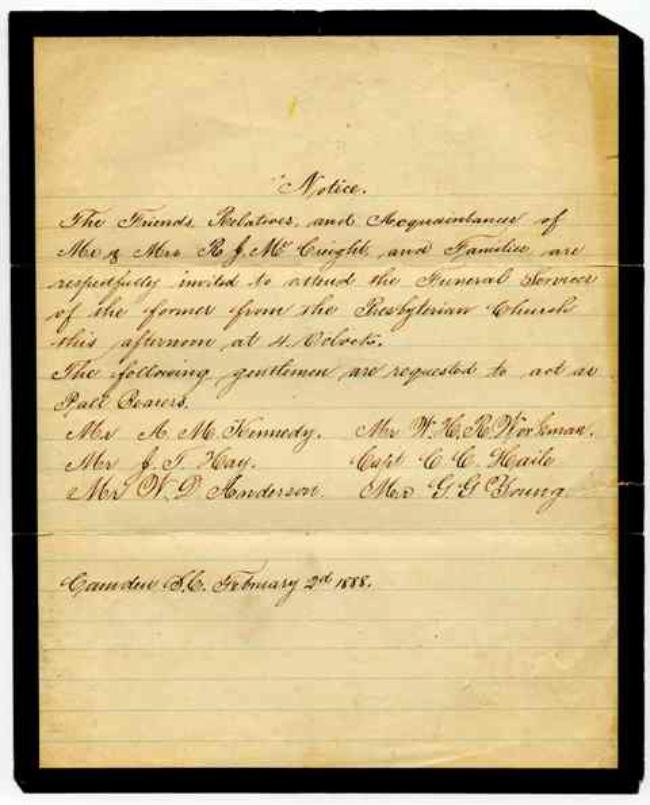 Notice.
The Friends, Relatives, and Acquaintances of
Mr & Mrs R. J. McCreight, and Families are
respectfully invited to attend the Funeral Services
of the former from the Presbyterian Church
this afternoon at 4. Oclock.
The following gentlemen are requested to act as
Pall Bearers.
Mr A. M. Kennedy. Mr W. H. R. Workman.
Mr J. T. Hay. Capt C C. Haile
Mr W. D Anderson. Mr G. G Young.
Camden S.C. February 2d 1888.